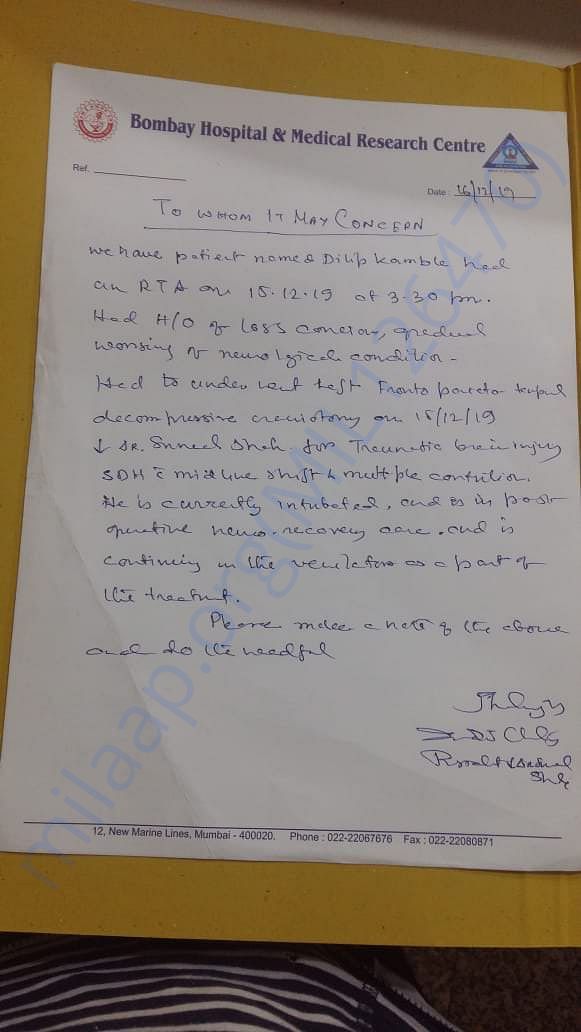 Bombay Hospital & Medical Research Centre
Ref.
Date : 16/12/19
TO WHOM IT MAY CONCERN
we have patient named Dilip Kamble had
an RTA on 15.12.19 at 3.30 pm.
Had H/O of loss , gradual
worsing of condition -
Had to under went Fronto
decompressive on 15/12/19
↓ DR. Suneel Shah for brain injury
SDH c̄ midline shift &
He is currently intubated, and is in post
operative neuro-recovery care. and is
on the as a part of
the
Please make a note of the above
and do the needful
12, New Marine Lines, Mumbai - 400020. Phone : 022-22067676 Fax : 022-22080871
milaap.org(MIL126470)